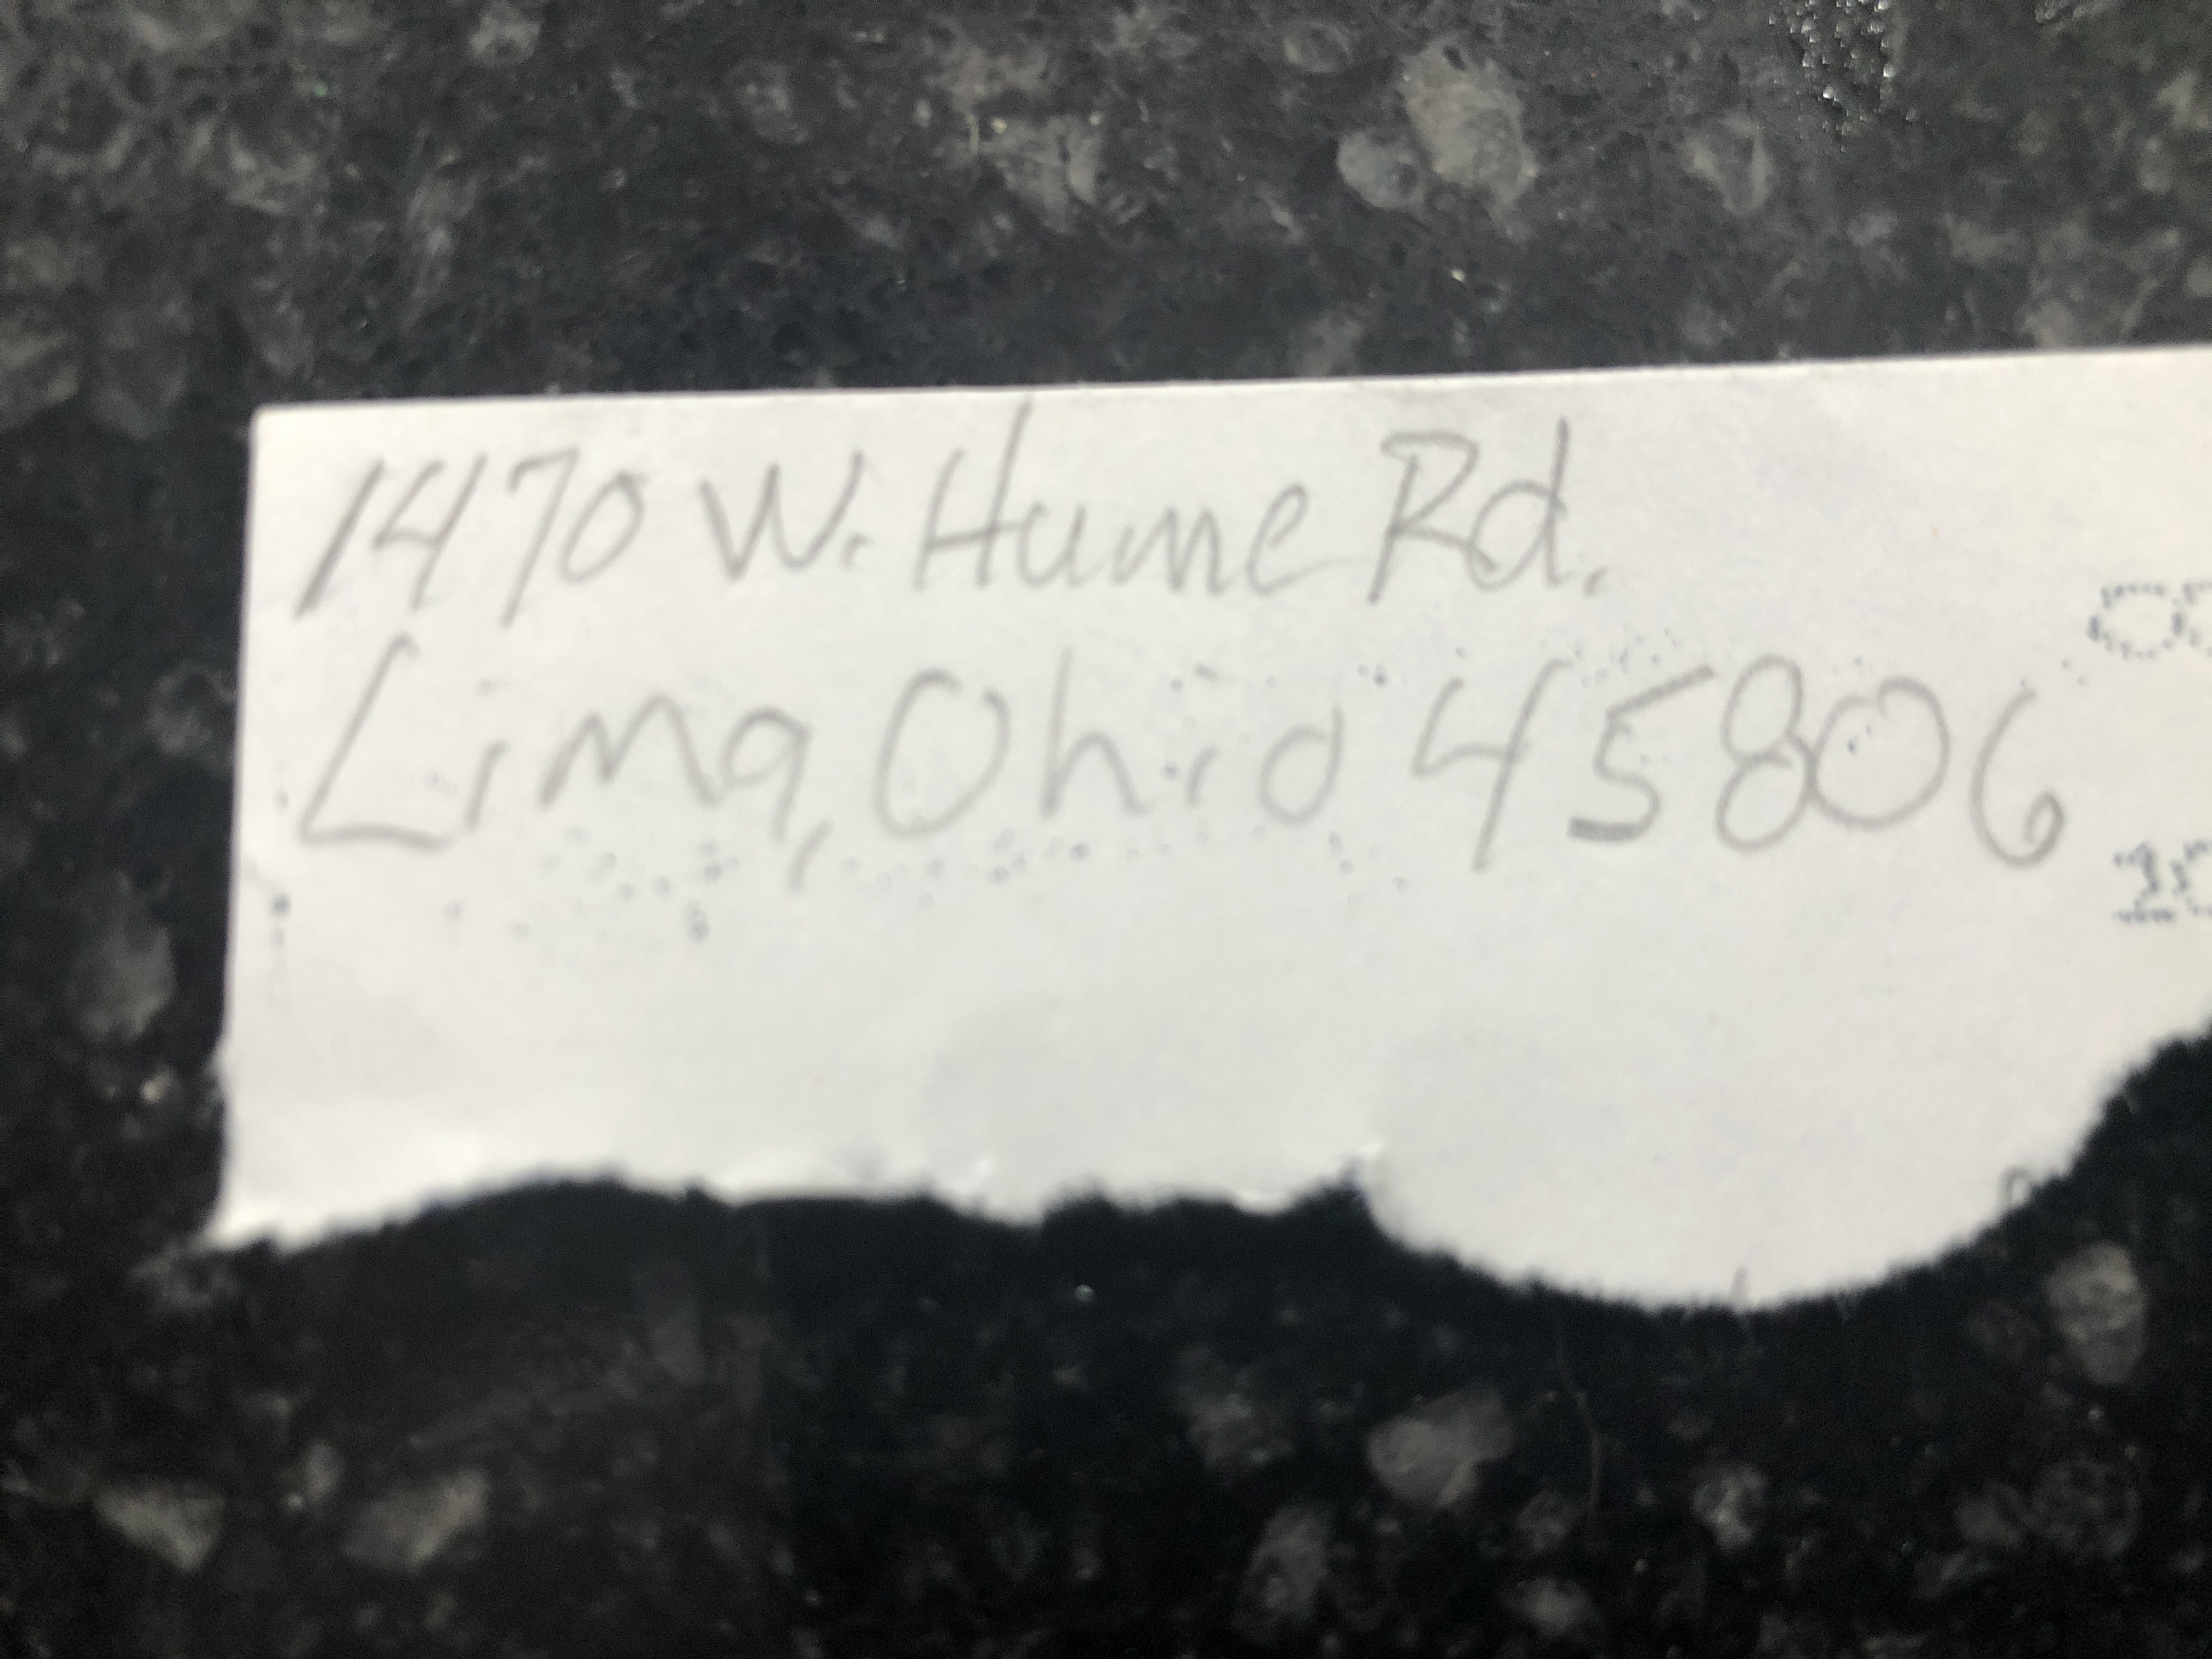 1470 W. Hume Rd.
Lima, Ohio 45806